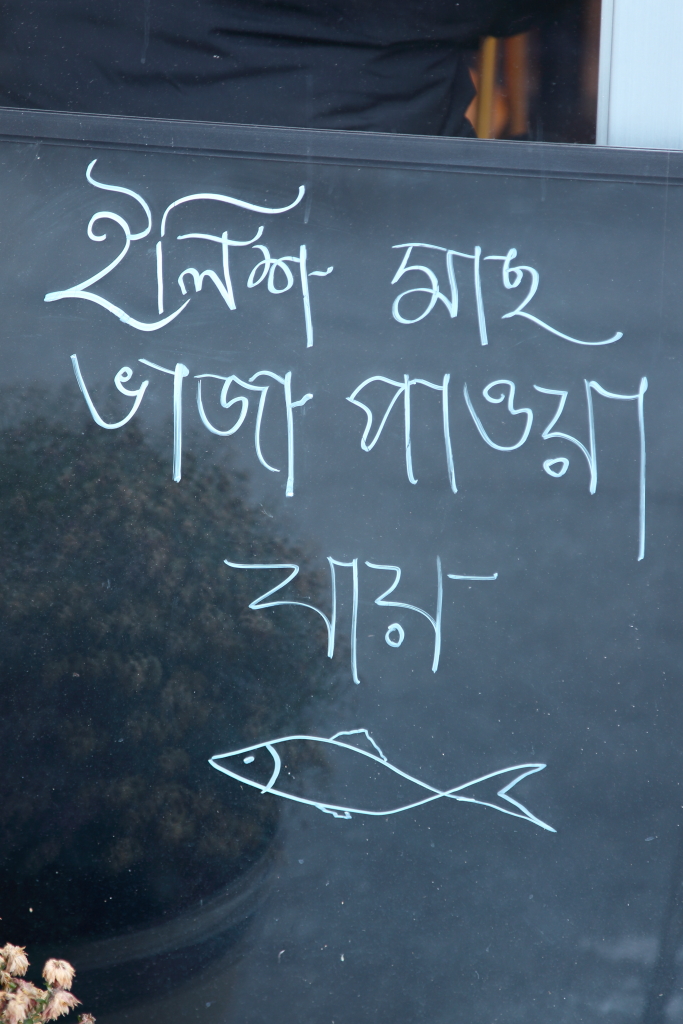 ইলিশ মাছ
ভাজা পাওয়া
যায়